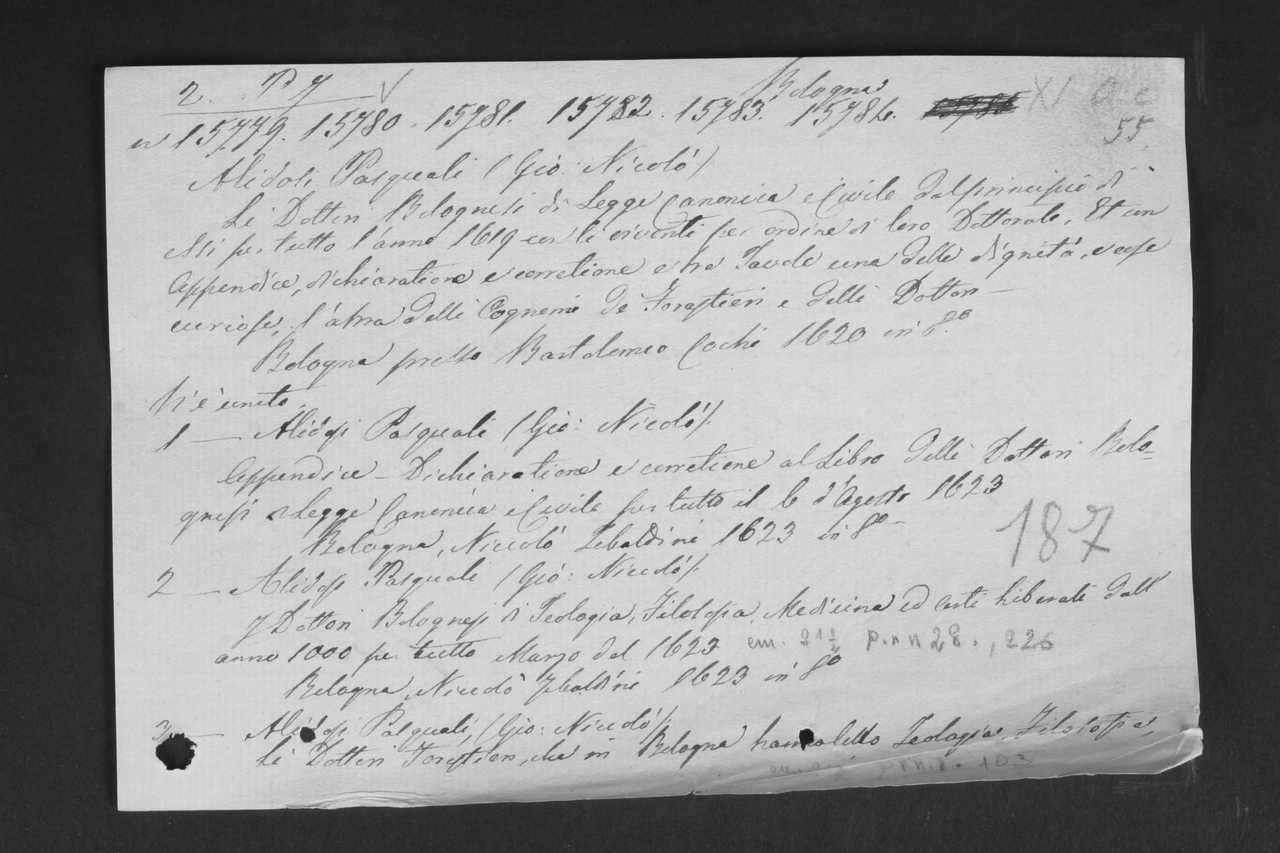 2. P 7
Bologna
n 15779. 15780. 15781. 15782. 15783. 15784.
XI
55
Alidosi Pasquali (Gio: Nicolò)
Li Dottori Bolognesi di Legge Canonica e Civile dal principio di
essi per tutto l'anno 1619 con li viventi per ordine di loro Dottorato, Et un
Appendice, dichiaratione e corretione e tre Tavole una delle dignità, e cose
curiose, l'altra delli Cognomi de Forastieri e delli Dottori —
Bologna presso Bartolomeo Cochi 1620 in 8.o
V'è unito.
1 — Alidosi Pasquali (Gio: Nicolò).
Appendice — Dichiaratione e corretione al Libro delli Dottori Bolo=
gnesi di Legge Canonica e Civile per tutto il 6 d'Agosto 1623
Bologna, Nicolò Tebaldini 1623 in 8o —
187
2 — Alidosi Pasquali (Gio: Nicolò).
I Dottori Bolognesi di Teologia, Filosofia, Medicina ed arti liberali dall'
anno 1000 per tutto Marzo del 1623 cm. 21½ p. n n 28., 226
Bologna, Nicolò Tebaldini 1623 in 8o
3 — Alidosi Pasquali, (Gio: Nicolò).
Li Dottori Forastieri, che in Bologna hanno letto Teologia, Filosofia,
103